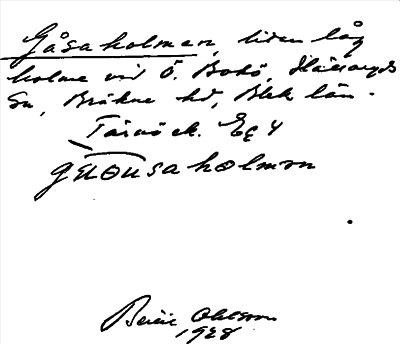 Gåsaholmen, liten låg
holme vid Ö. Bokö, Hällaryds
Sn, Bräkne hd, Blek län.
Tärnö ek. Eg 4
holmen
Ohlsson
1928